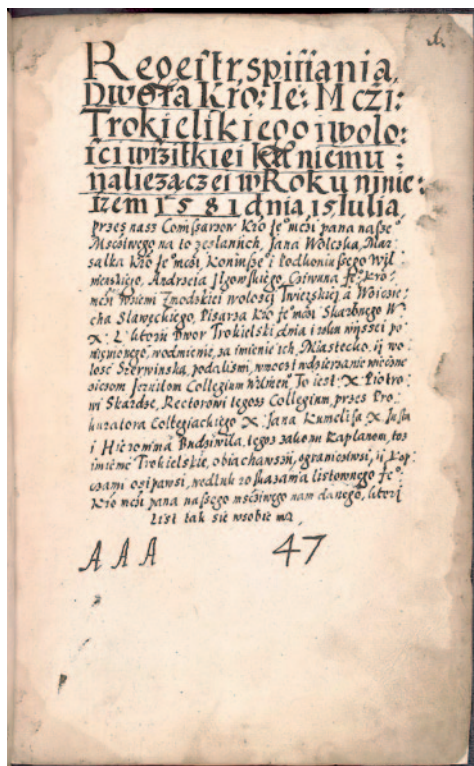 Regestr, spisania,
Dwora Kro: Je: M czi:
Trokielskiego i wolo:
sci wszitkiei k niemu :
naliezączei w Roku ninie:
szem 1581 dnia 15 Iulia
przes nass Comissarzow Kro Je° mczi pana nasse°
Msćiwego na to zesłanich, Jana Wolczka, Mar:
salka Kro Je° mczi, Koniusse i Podkoniussego Wil
menskiego, Andrzeia Ilgowskiego, Ciwuna Je° Kro:
mczi wziemi Zmodskiei wolosci Twerskiei, a Woicie:
cha Slaweckiego, Pisarza Kro Je° mczi Skarbnego W
X: L: ktorzi Dwor Trokielski dnia i roku wysszei po
mienionego, wodmienie, za imienie ich, Miastecko, ij wo:
losć Szerwinską, podalismi, wmocz i wdzierzanie wieczne
oiczom Jezuitom Collegium Wilnen: To iest: X: Piotro:
wi Skardze, Rectorowi tegosz Collegium, przes Pro:
kuratora Collegiackiego X: Jana Kumelisa X Justa
i Hieronima Budziwila, tegosz zakonu Kaplanow, tosz
imienie Trokielskie, obiachawszij, ogranicziwsi, ij kop:
czami osipawsi, wedluk roskazania listownego Je°
Kro mczi pana nassego msćziwego nam danego, ktori
list tak sie wsobie ma
A A A 47